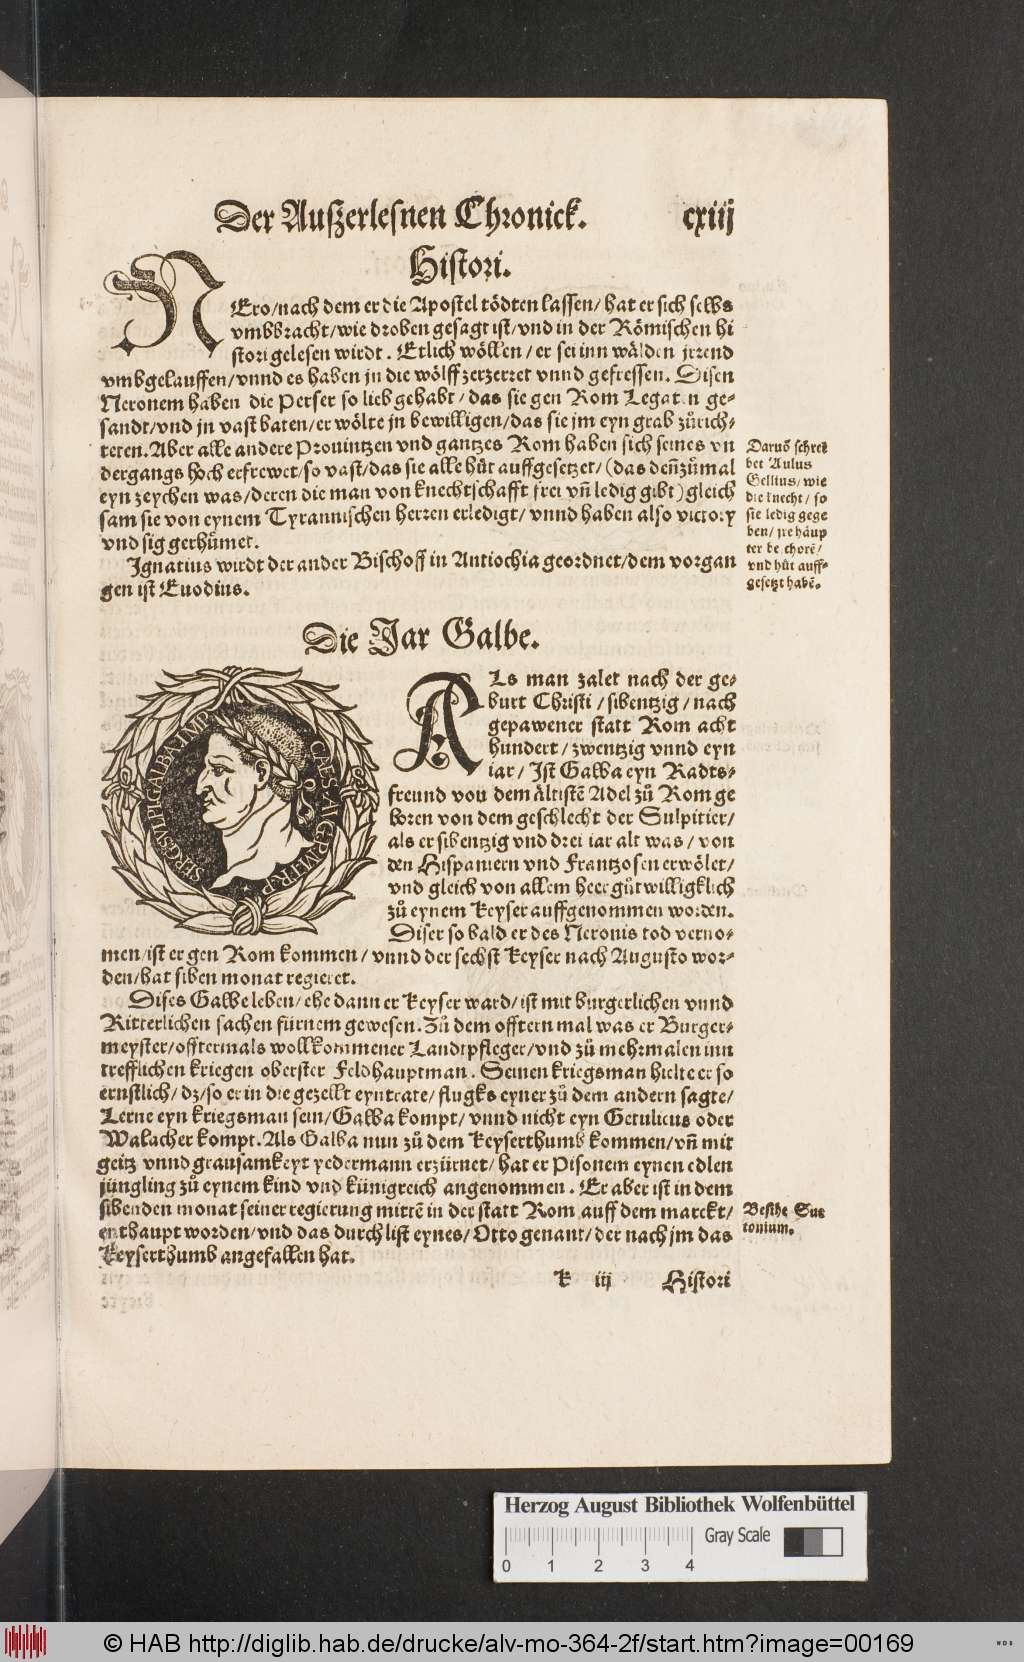 Der Außerlesnen Chronick. cxiij
Histori.
NEro/nach dem er die Apostel tödten lassen/hat er sich selbs
vmbbracht/wie droben gesagt ist/vnd in der Römischen hi
stori gelesen wirdt. Etlich wöllen/er sei inn wälden jrrend
vmbgelauffen/vnnd es haben jn die wölff zerzerret vnnd gefressen. Disen
Neronem haben die Perser so lieb gehabt/das sie gen Rom Legaten ge-
sandt/vnd jn vast baten/er wölte jn bewilligen/das sie jm eyn grab zůrich-
teten. Aber alle andere Prouintzen vnd gantzes Rom haben sich seines vn
dergangs hoch erfrewet/so vast/das sie alle hüt auffgesetzet/(das deñ zůmal
eyn zeychen was/deren die man von knechtschafft frei vñ ledig gibt) gleich
sam sie von eynem Tyrannischen herren erledigt/vnnd haben also victory
vnd sig gerhůmet.
Ignatius wirdt der ander Bischoff in Antiochia geordnet/dem vorgan
gen ist Euodius.
Darumb schrei
bet Aulus
Gellius/wie
die knecht/so
sie ledig gege
ben/jre häup
ter beschorē/
vnd hüt auff-
gesetzt habē.
Die Jar Galbe.
SERG. SVLPI. GALBA. IMP. CAES. AVG. P. M. TR. P.
ALs man zalet nach der ge-
burt Christi/sibentzig/nach
gepawener statt Rom acht
hundert/zwentzig vnnd eyn
iar/Ist Galba eyn Radts-
freund von dem ältistē Adel zů Rom ge
boren von dem geschlecht der Sulpitier/
als er sibentzig vnd drei iar alt was/von
den Hispaniern vnd Frantzosen erwölet/
vnd gleich von allem heer gůtwilligklich
zů eynem Keyser auffgenommen worden.
Diser so bald er des Neronis tod verno-
men/ist er gen Rom kommen/vnnd der sechst Keyser nach Augusto wor-
den/hat siben monat regieret.
Dises Galbe leben/ehe dann er Keyser ward/ist mit burgerlichen vnnd
Ritterlichen sachen fürnem gewesen. Zů dem offtern mal was er Burger-
meyster/offtermals wollkommener Landtpfleger/vnd zů mehrmalen inn
trefflichen kriegen oberster Feldhauptman. Seinen kriegsman hielte er so
ernstlich/dz/so er in die gezellt eyntrate/flugks eyner zů dem andern sagte/
Lerne eyn kriegsman sein/Galba kompt/vnnd nicht eyn Getulicus oder
Walacher kompt. Als Galba nun zů dem Keyserthumb kommen/vñ mit
geitz vnnd grausamkeyt yedermann erzürnet/hat er Pisonem eynen edlen
jüngling zů eynem kind vnd künigreich angenommen. Er aber ist in dem
sibenden monat seiner regierung mittē in der statt Rom auff dem marckt/
enthaupt worden/vnd das durch list eynes/Otto genant/der nach jm das
Keyserthumb angefallen hat.
Besihe Sue
tonium.
K iij Histori
Herzog August Bibliothek Wolfenbüttel
Gray Scale
0 1 2 3 4
© HAB http://diglib.hab.de/drucke/alv-mo-364-2f/start.htm?image=00169